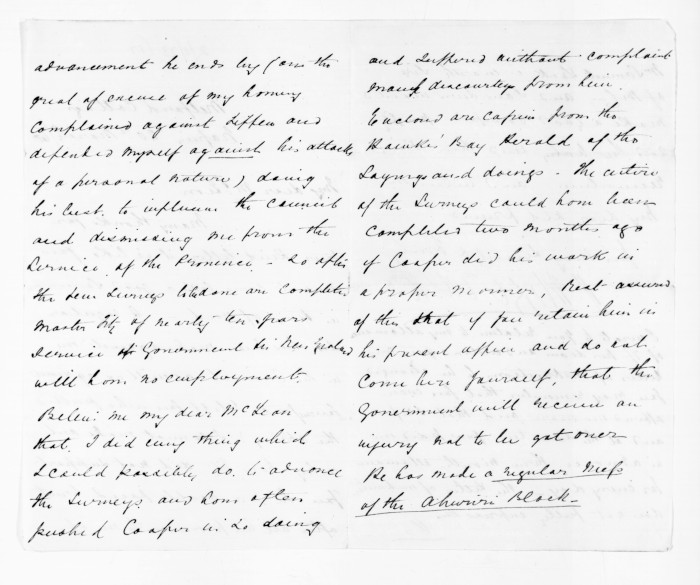 advancement he ends by (on the
great of excuse of my having
complained against Tiffen and
defended myself against his attacks
of a personal nature) doing
his best to influence the Council
and dismissing me from the
Service of the Province - So after
the few Surveys to be done are completed
Master Fitz of nearly ten years
Service to Government in New Zealand
will have no employment.
Believe me my dear McLean
that I did every thing which
I could possibly do to advance
the Surveys and have often
pushed Cooper in so doing
and suffered without complaint
many discourtesy from him.
Enclosed are copies from the
Hawke's Bay Herald of the
Sayings and doings - The entire
of the Surveys could have been
completed two months ago
if Cooper did his work in
a proper manner, Rest assured
of this that if you retain him in
his present office and do not
come here yourself, that the
Government will receive an
injury not to be got over
He has made a regular mess
of the Ahuriri Block.